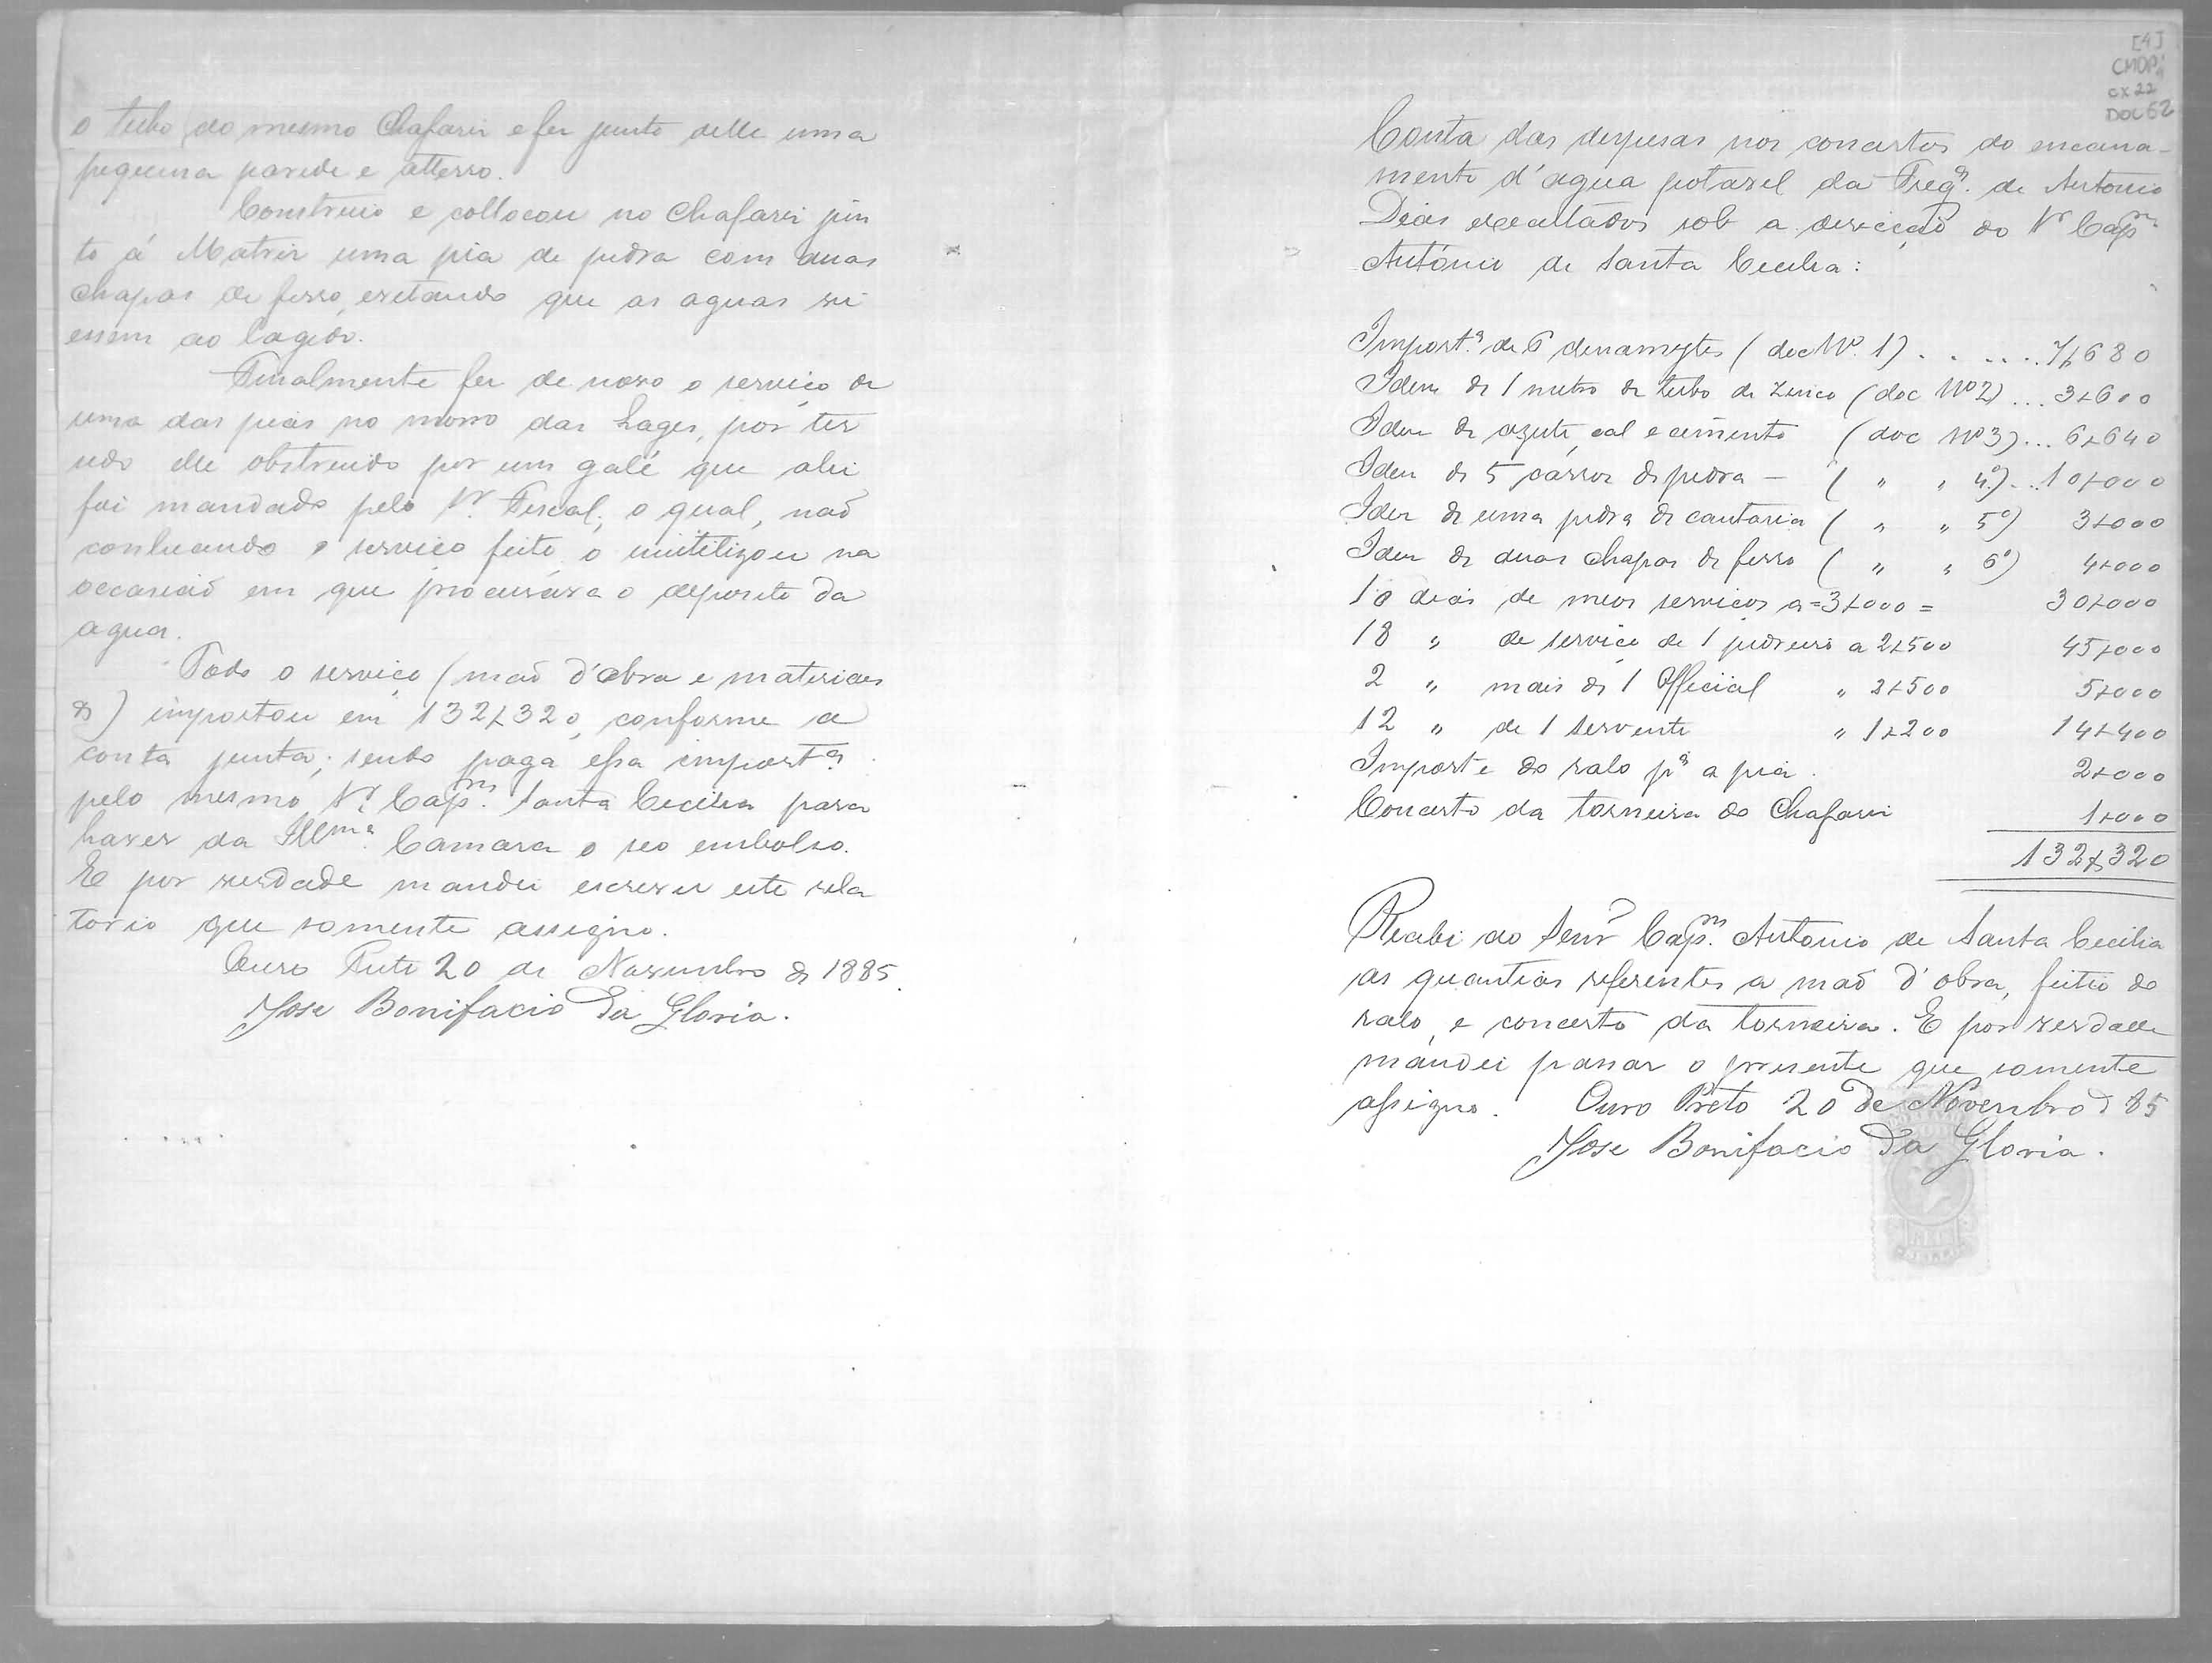 o tubo do mesmo Chafariz e fez junto delle uma
pequena parede e atterro.
Construio e collocou no Chafariz jun
to á Matriz uma pia de pedra com duas
chapas de ferro, evitando que as aguas vi
essem ao lagedo.
Finalmente fez de novo o serviço de
uma das pias no morro das Lages, por ter
sido elle obstruido por um galé que alli
foi mandado pelo Sr. Fiscal, o qual, naõ
conhecendo o serviço feito, o inutilizou na
occasiaõ em que procurára o deposito da
agua.
Todo o serviço (maõ d'obra e materiaes
&) importou em 132$320, conforme a
conta junta; sendo paga essa import.ª
pelo mesmo Sr. Capm. Santa Cecilia para
haver da Illma. Camara o seo embolso.
E por verdade mandei escrever este rela
torio que somente assigno.
Ouro Preto 20 de Novembro de 1885.
Jose Bonifacio da Gloria.
[4]
CMOP
CX 22
DOC 62
Conta das despesas nos concertos do encana-
mento d'agua potavel da Fregª. de Antonio
Dias executados sob a direcçaõ do Sr Capm.
Antônio de Santa Cecilia:
Import.ª de 6 denamytes (doc Nº. 1) . . . . . . 7$680
Idem de 1 metro de tubo de zinco (doc Nº 2) ... 3$600
Idem de azeite, cal e cimento (doc Nº 3) ... 6$640
Idem de 5 carros de pedra - ( " " 4º) .. 10$000
Idem de uma pedra de cantaria ( " " 5º) 3$000
Idem de duas chapas de ferro ( " " 6º) 4$000
10 dias de meos serviços a = 3$000 = 30$000
18 " de serviço de 1 pedreiro a 2$500 45$000
2 " mais de 1 Official " 2$500 5$000
12 " de 1 servente " 1$200 14$400
Importe do ralo pª a pia. 2$000
Concerto da torneira do Chafariz 1$000
132$320
Recebi do Senr Capm. Antonio de Santa Cecilia
as quantias referentes a maõ d'obra, feitio do
ralo, e concerto da torneira. E por verdade
mandei passar o presente que somente
assigno. Ouro Preto 20 de Novembro d 85
Jose Bonifacio da Gloria.